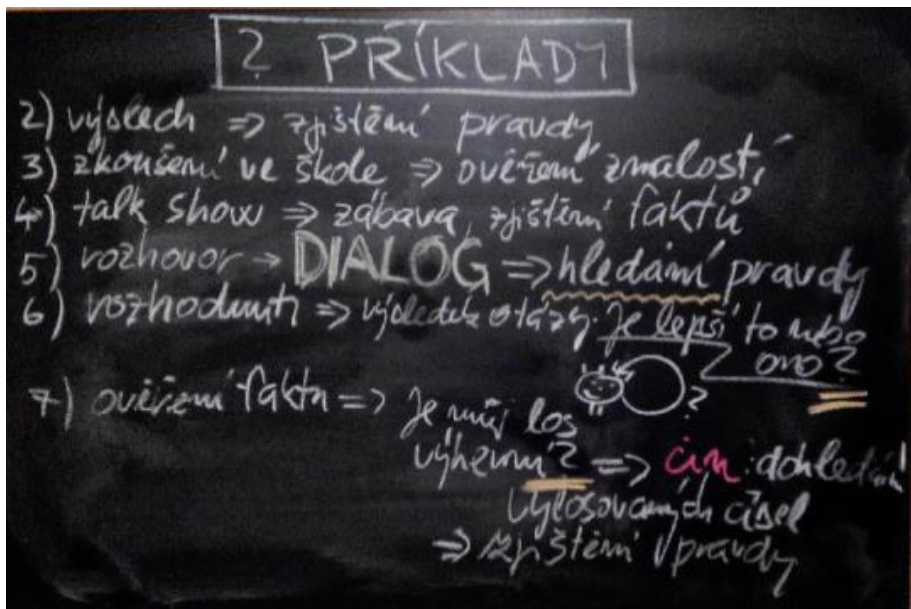 ? PŘÍKLADY
2) výslech => zjištění pravdy
3) zkoušení ve škole => ověření znalostí
4) talk show => zábava, zjištění faktů
5) rozhovor → DIALOG => hledání pravdy
6) rozhodnutí => výsledek otázy: je lepší to nebo
ono?
?
7) ověření faktu => je můj los
výherní? => čin: dohledání
vylosovaných čísel
=> zjištění pravdy